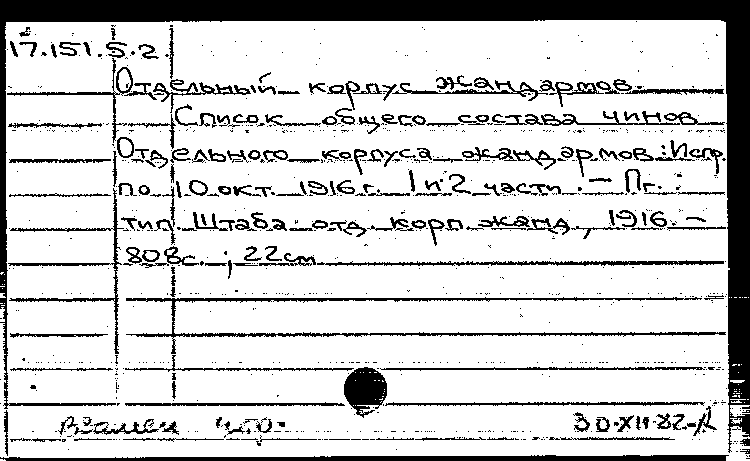 17.151.5.2.
Отдельный корпус жандармов.
Список общего состава чинов
Отдельного корпуса жандармов: Испр.
по 10 окт. 1916 г. 1 и 2 части. – Пг.:
тип. Штаба отд. корп. жанд., 1916. –
808с. ; 22см
Взамен утр. 30-XII-82-